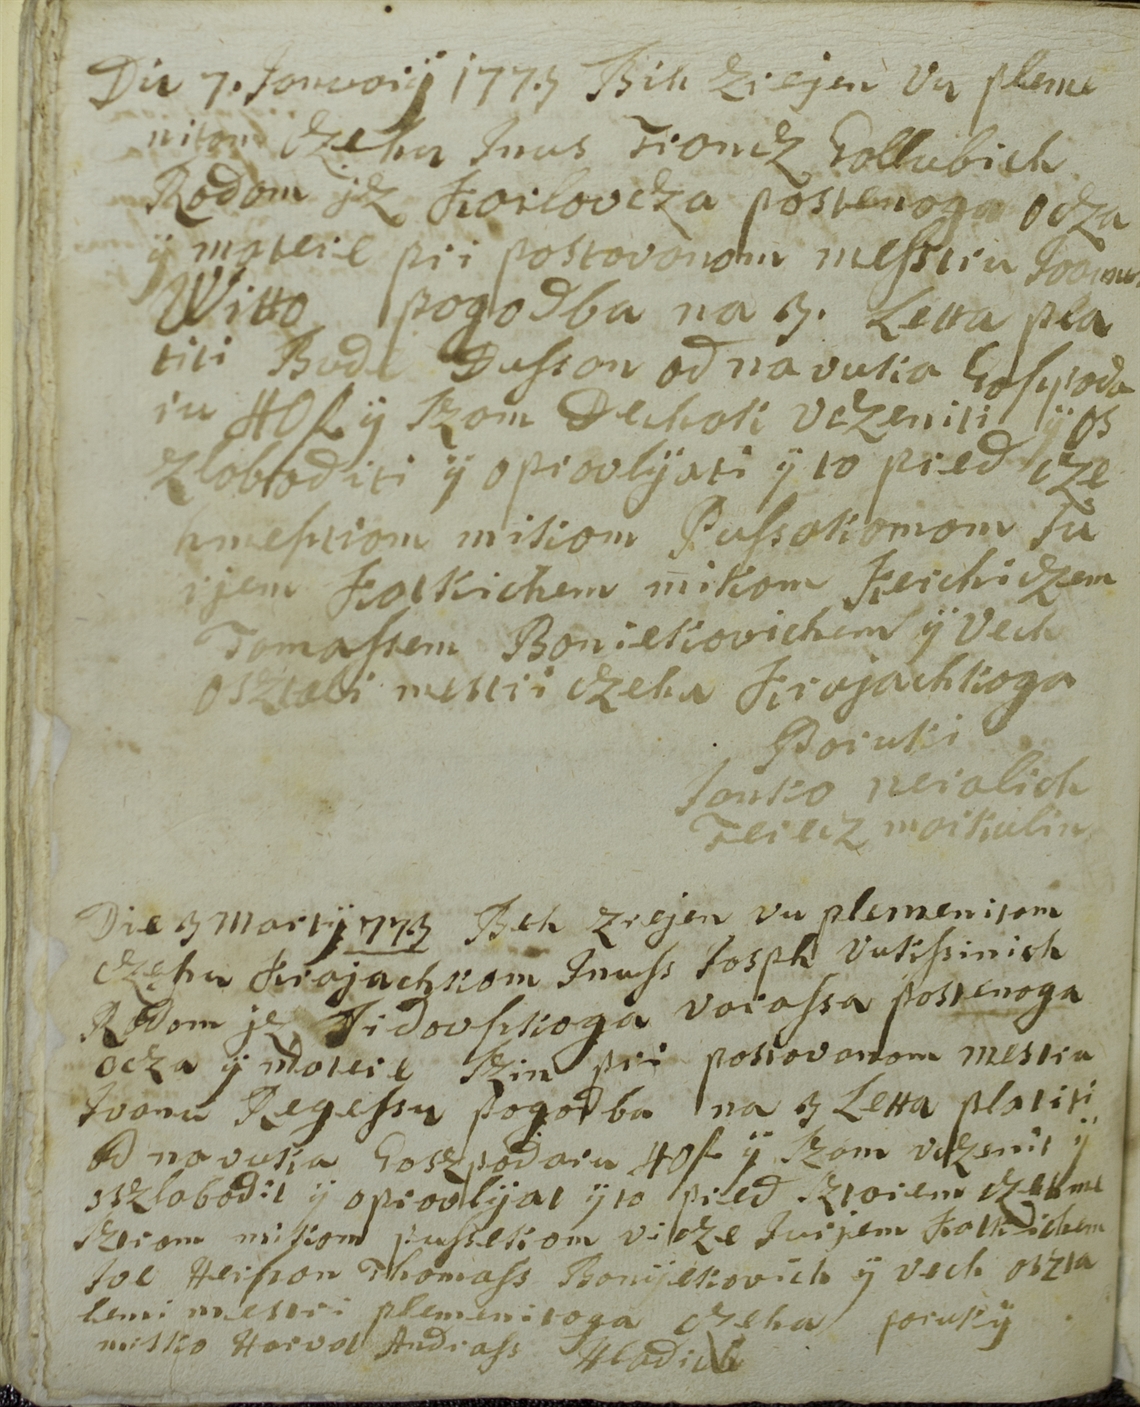 Die 7. Januarij 1773 Bih zrejen vu pleme
nitom Czehu Inus Francz Gollubich
Rodom jz Karlovcza postenoga ocza
ÿ matere pri postovanom meshtru Ioannu
Witto pogodba na 3. Letta pla
titi Bude Dussan od navuka Goshpoda
ru 40 f ÿ szam Dechak vczeniti ÿ os
zloboditi ÿ opravlÿati ÿ to pred cze
hmeshtrom mikom Pussakomom Iu
rjem Katkichem mikom Kerchiczem
Tomassem Boniekovichem ÿ Vech
osztali mestri czeha Krajachkoga
Poruki
Janko neralich
Ferecz markulin
Die 3 Martÿ 1773 Beh zrejen vu plemenitom
Czehu Krajachkom Inass Josph Vukshinich
Rodom jz Sidovshkoga varassa postenoga
ocza ÿ matere Szin pri postovanom mestru
Ivanu Regessu pogodba na 3 Letta platiti
od navuka Goszpodaru 40 f ÿ szam vczenit ÿ
oszlobodit ÿ opravlÿat ÿ to pred Sztarem czehme
sztrom mikom pussekom vicze Jurjem Katkichem
Joe Hershon Thomass Bonÿekovich ÿ vech oszta
lemi mestri plemenitoga czeha porukÿ
misko Horvat Andrass Hladich